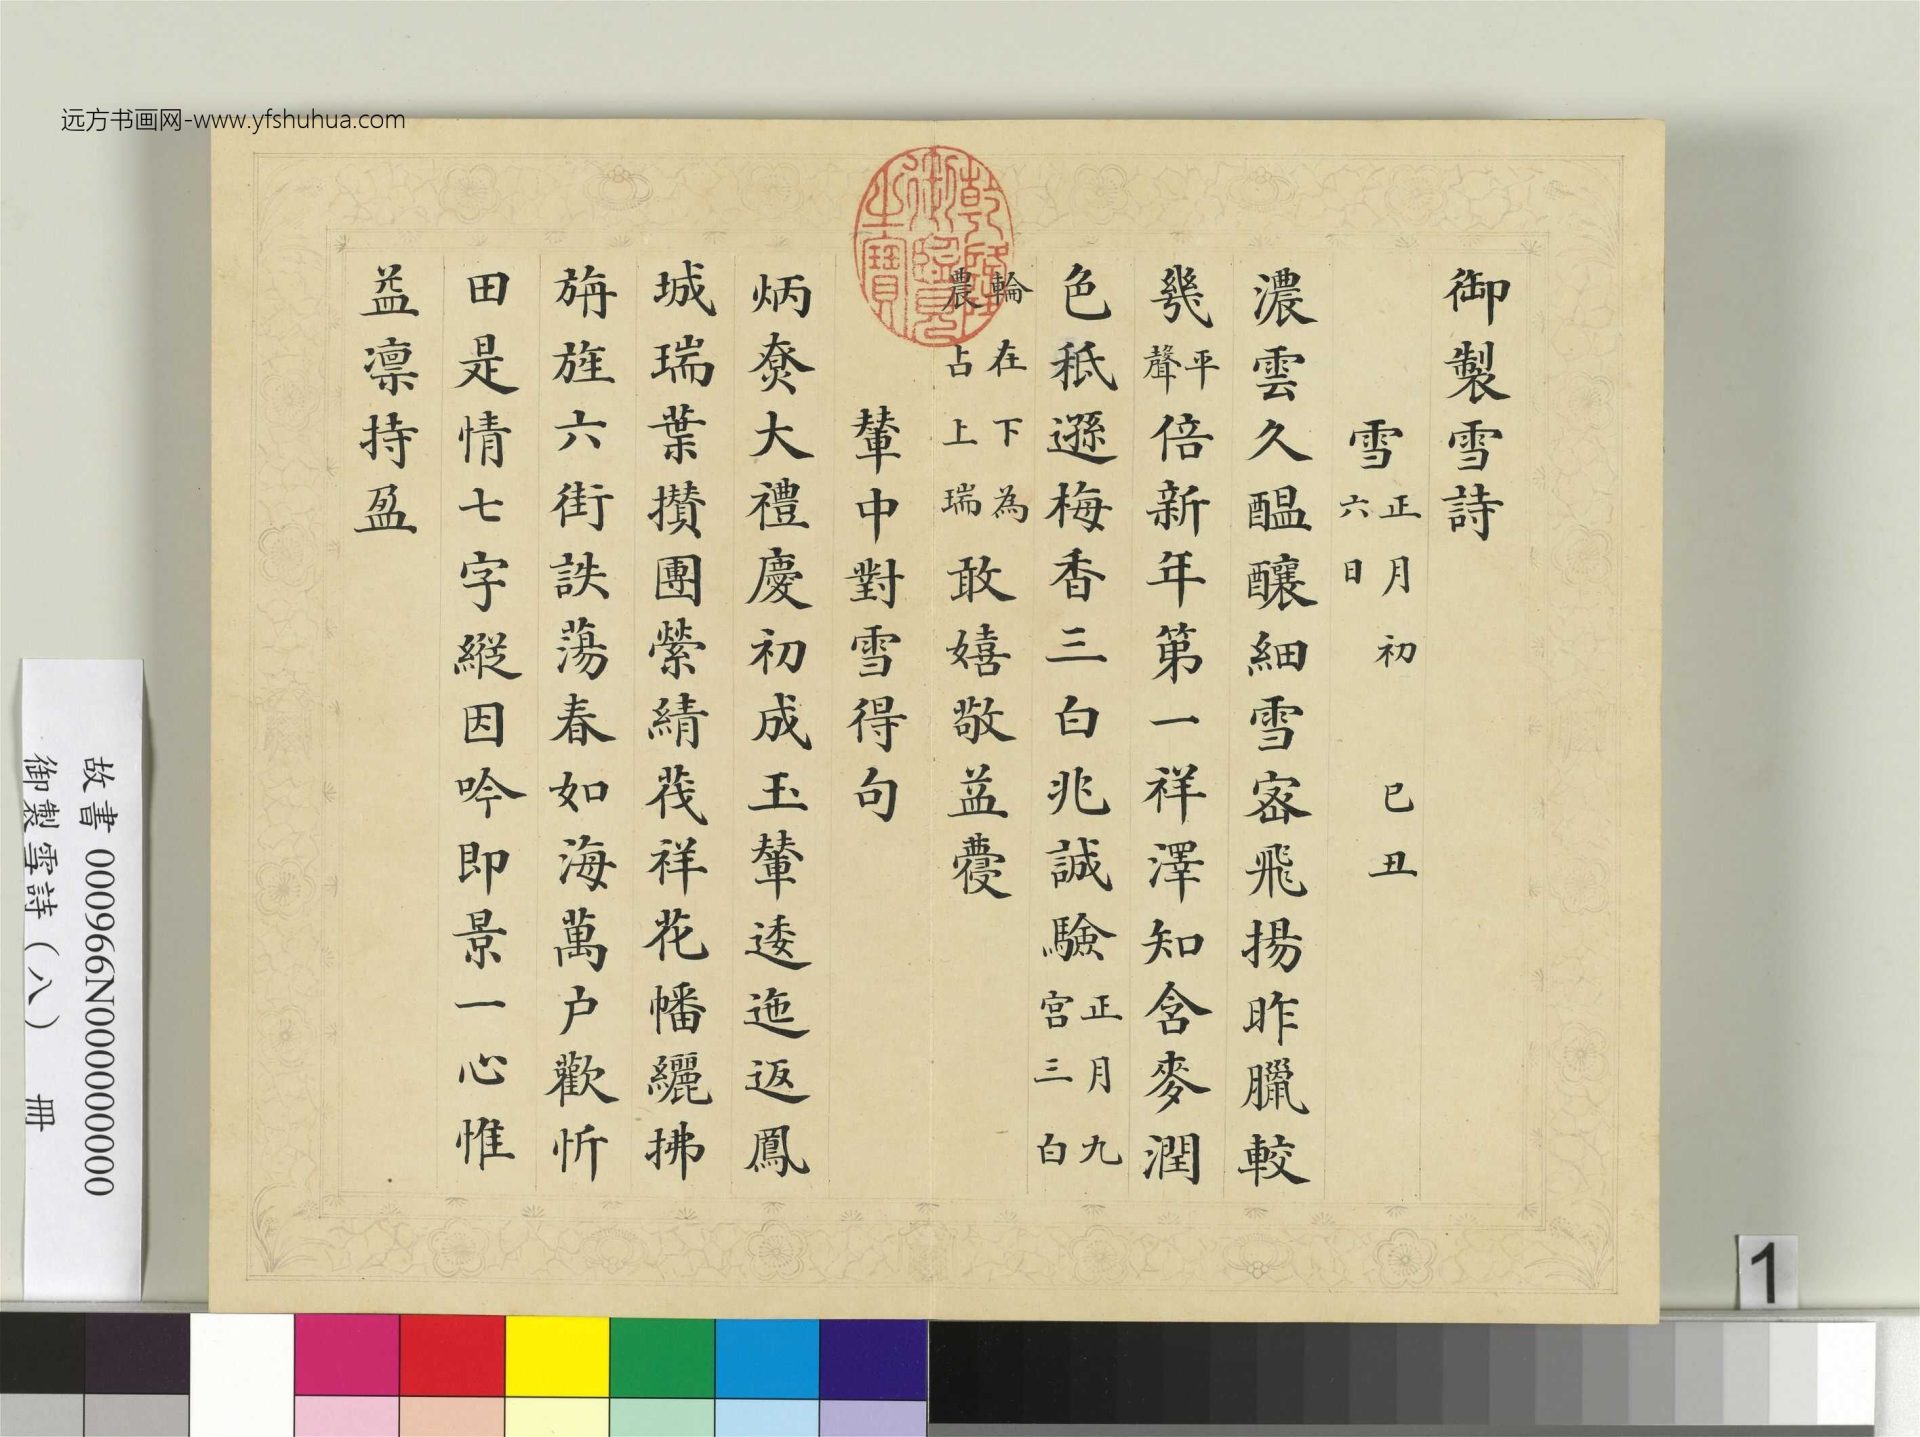 远方书画网-www.yfshuhua.com
御製雪詩
雪 正月初六日 己丑
濃雲久醖釀細雪宻飛揚昨臘較
㡬 平聲 倍新年第一祥澤知含麥潤
色秪遜梅香三白兆誠驗 正月九宫三白
輪在下為農占上瑞 敢嬉敬益
輦中對雪得句
炳㶼大禮慶初成玉輦逶迤返鳳
城瑞葉攢團縈綪茷祥花幡纚拂
旃旌六街詄蕩春如海萬户歡忻
田是情七字縱因吟即景一心惟
益凛持盈
乾隆御覽之寶
故書 000966N000000000
御製雪詩（八） 冊
1